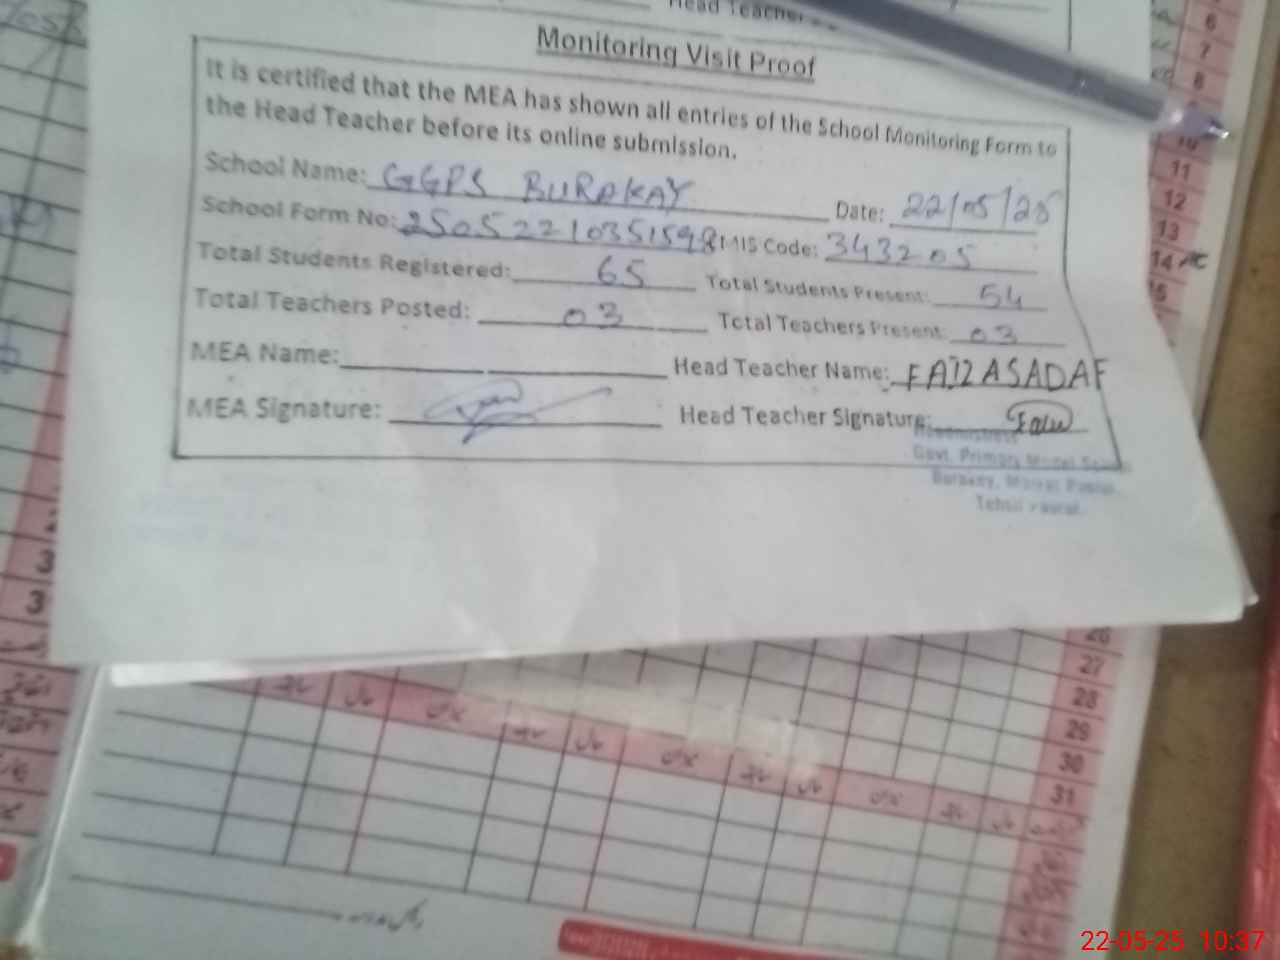 Head Teacher
Monitoring Visit Proof
It is certified that the MEA has shown all entries of the School Monitoring Form to
the Head Teacher before its online submission.
School Name: GGPS BURAKAY Date: 22/05/25
School Form No: 25052210351598 MIS Code: 34320 05
Total Students Registered: 65 Total Students Present: 54
Total Teachers Posted: 03 Total Teachers Present: 03
MEA Name: Head Teacher Name: FAIZA SADAF
MEA Signature: Head Teacher Signature:
Headmistress
Govt. Primary Model
Burakay,
Tehsil
6
7
8
10
11
12
13
14
15
3
3
26
27
28
29
30
31
22-05-25 10:37